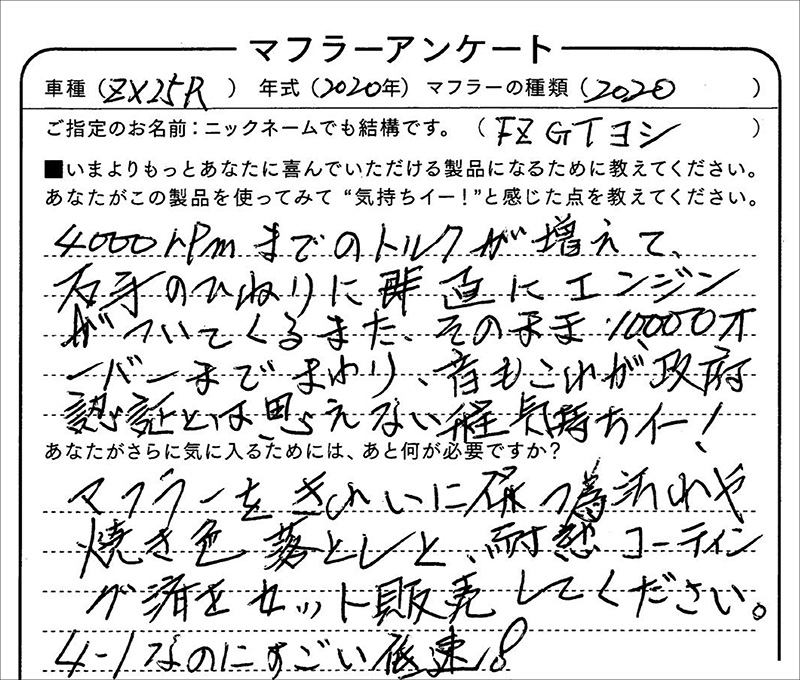 マフラーアンケート
車種（ZX25R） 年式（2020年） マフラーの種類（2020）
ご指定のお名前：ニックネームでも結構です。（FZGTヨシ）
■いまよりもっとあなたに喜んでいただける製品になるために教えてください。
あなたがこの製品を使ってみて“気持ちイー！”と感じた点を教えてください。
4000rpmまでのトルクが増えて、
右手のひねりに 直にエンジン
がついてくるまた、そのまま10000オ
ーバーまでまわり、音もこれが政府
認証とは思えない 気持ちイー！
あなたがさらに気に入るためには、あと何が必要ですか？
マフラーをきれいに保つ為汚れや
焼き色落としと、耐熱コーティン
グ済をセット販売してください。
4-1なのにすごい低速！